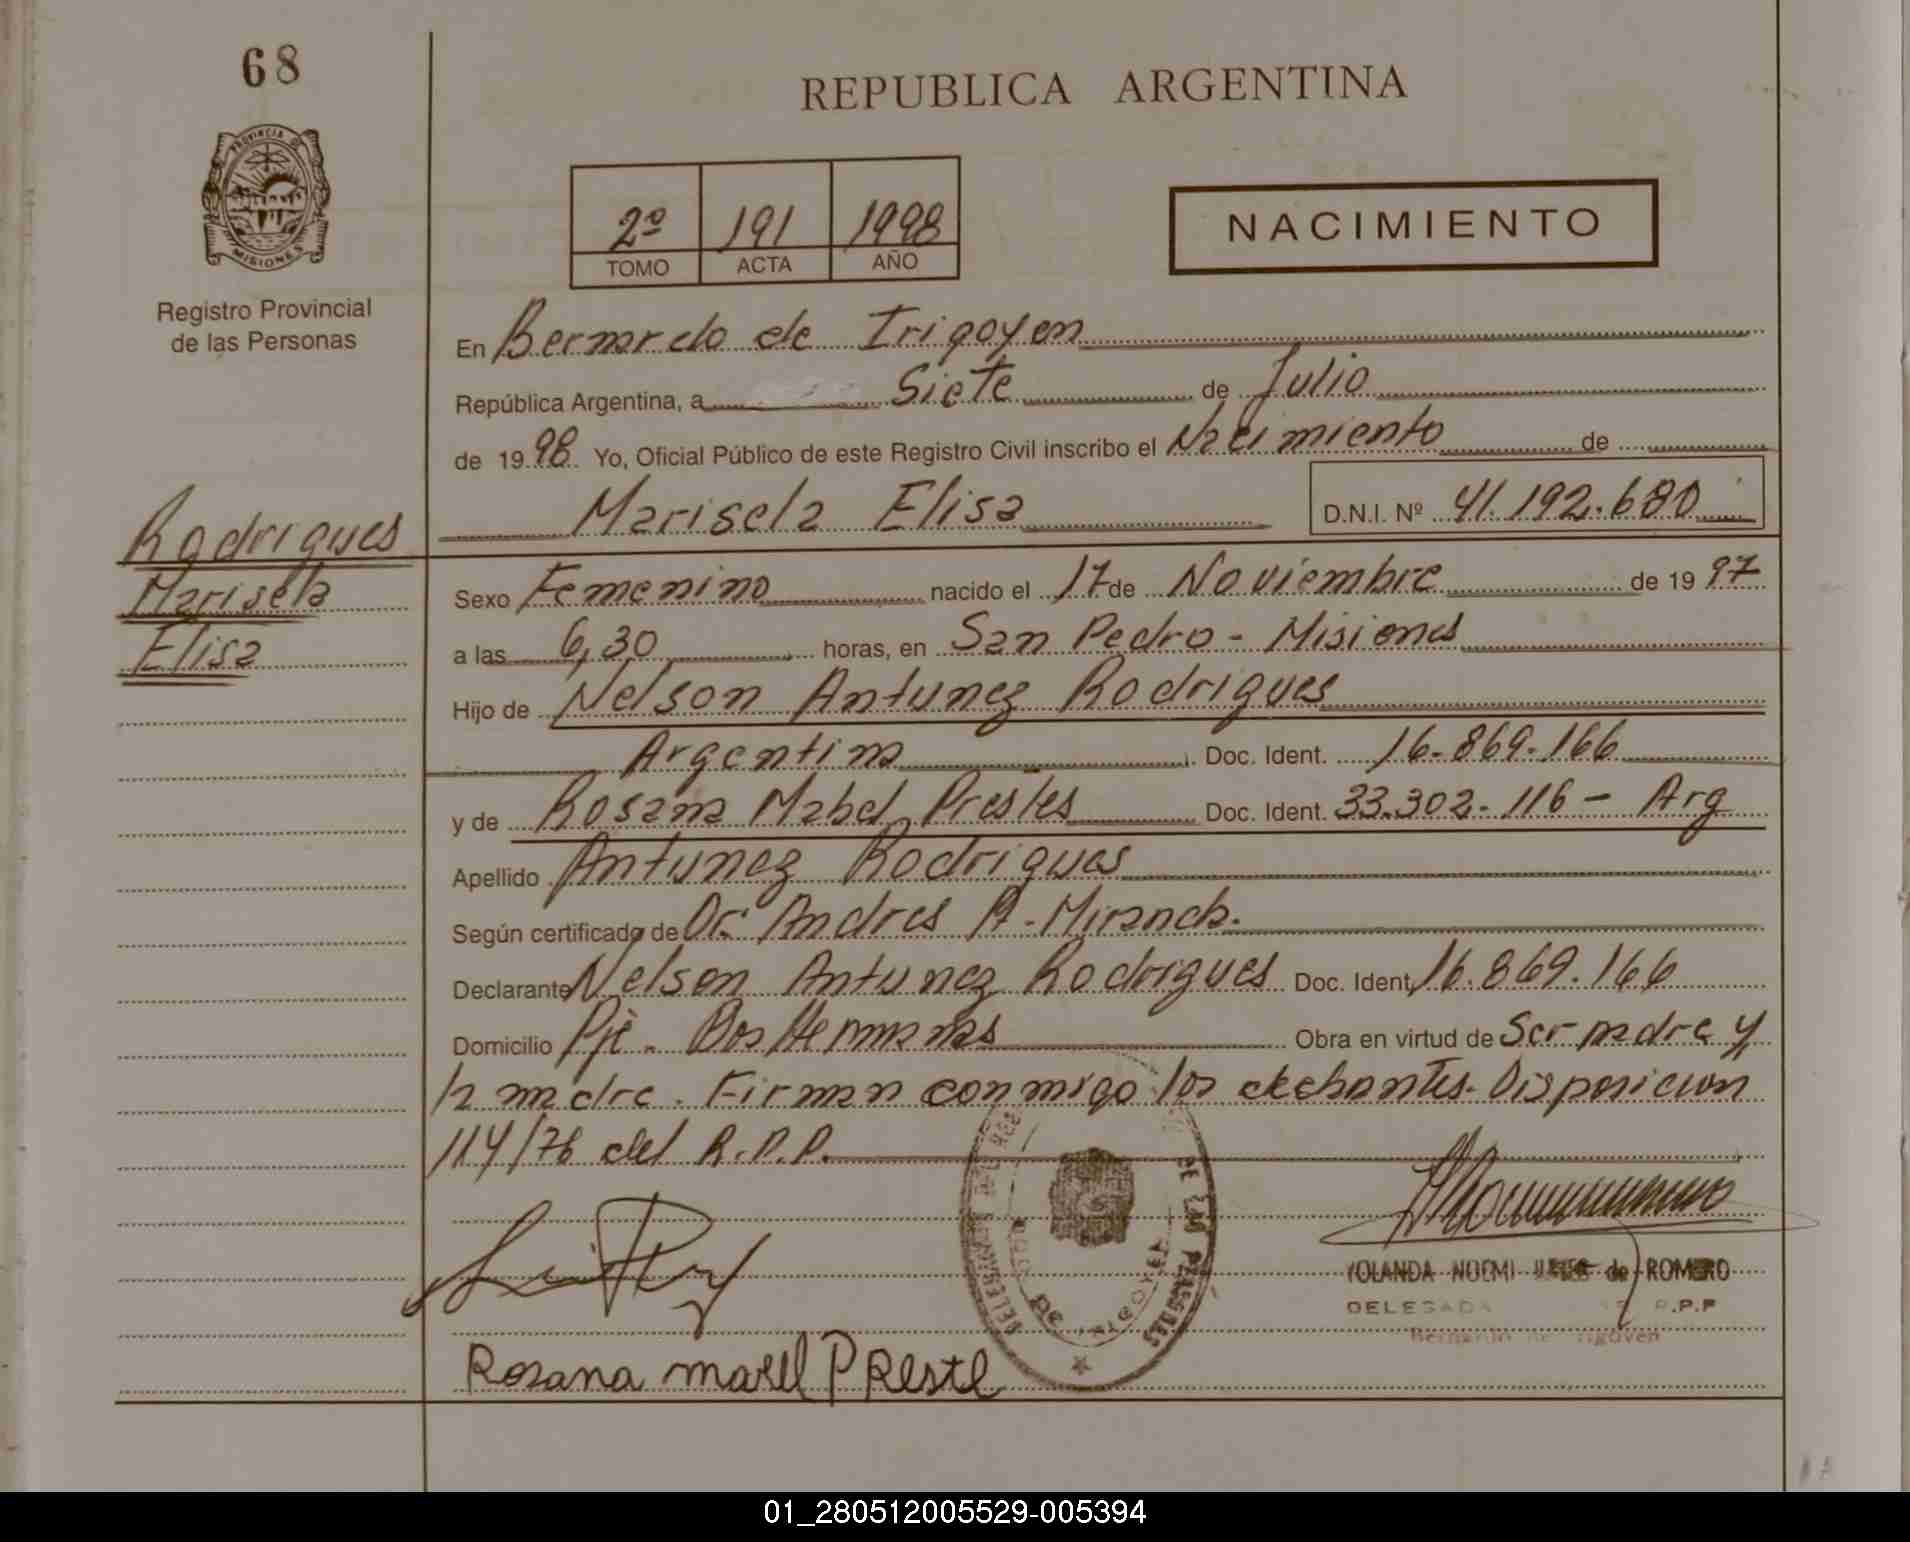 68
REPUBLICA ARGENTINA
PROVINCIA DE
MISIONES
2º 191 1998
TOMO ACTA AÑO
NACIMIENTO
Registro Provincial
de las Personas
En Bernardo de Irigoyen
República Argentina, a Siete de Julio
de 1998 Yo, Oficial Público de este Registro Civil inscribo el Nacimiento de
Marisela Elisa D.N.I. Nº 41.192.680
Rodrigues
Marisela
Elisa
Sexo Femenino nacido el 17 de Noviembre de 1997
a las 6,30 horas, en San Pedro - Misiones
Hijo de Nelson Antunez Rodrigues
Argentino Doc. Ident. 16.869.166
y de Rosana Mabel Prestes Doc. Ident. 33.302.116 - Arg
Apellido Antunez Rodrigues
Según certificado de Dr. Andres A. Miranda.
Declarante Nelson Antunez Rodrigues Doc. Ident. 16.869.166
Domicilio Pje. Dos Hermanas Obra en virtud de Ser padre y
la madre. Firman conmigo los declarantes. Disposicion
114/76 del R.P.P.
DE LAS PERSONAS
YOLANDA NOEMI de ROMERO
DELEGADA R.P.P
Bernardo de Irigoyen
Rosana mabel PReste
01_280512005529-005394